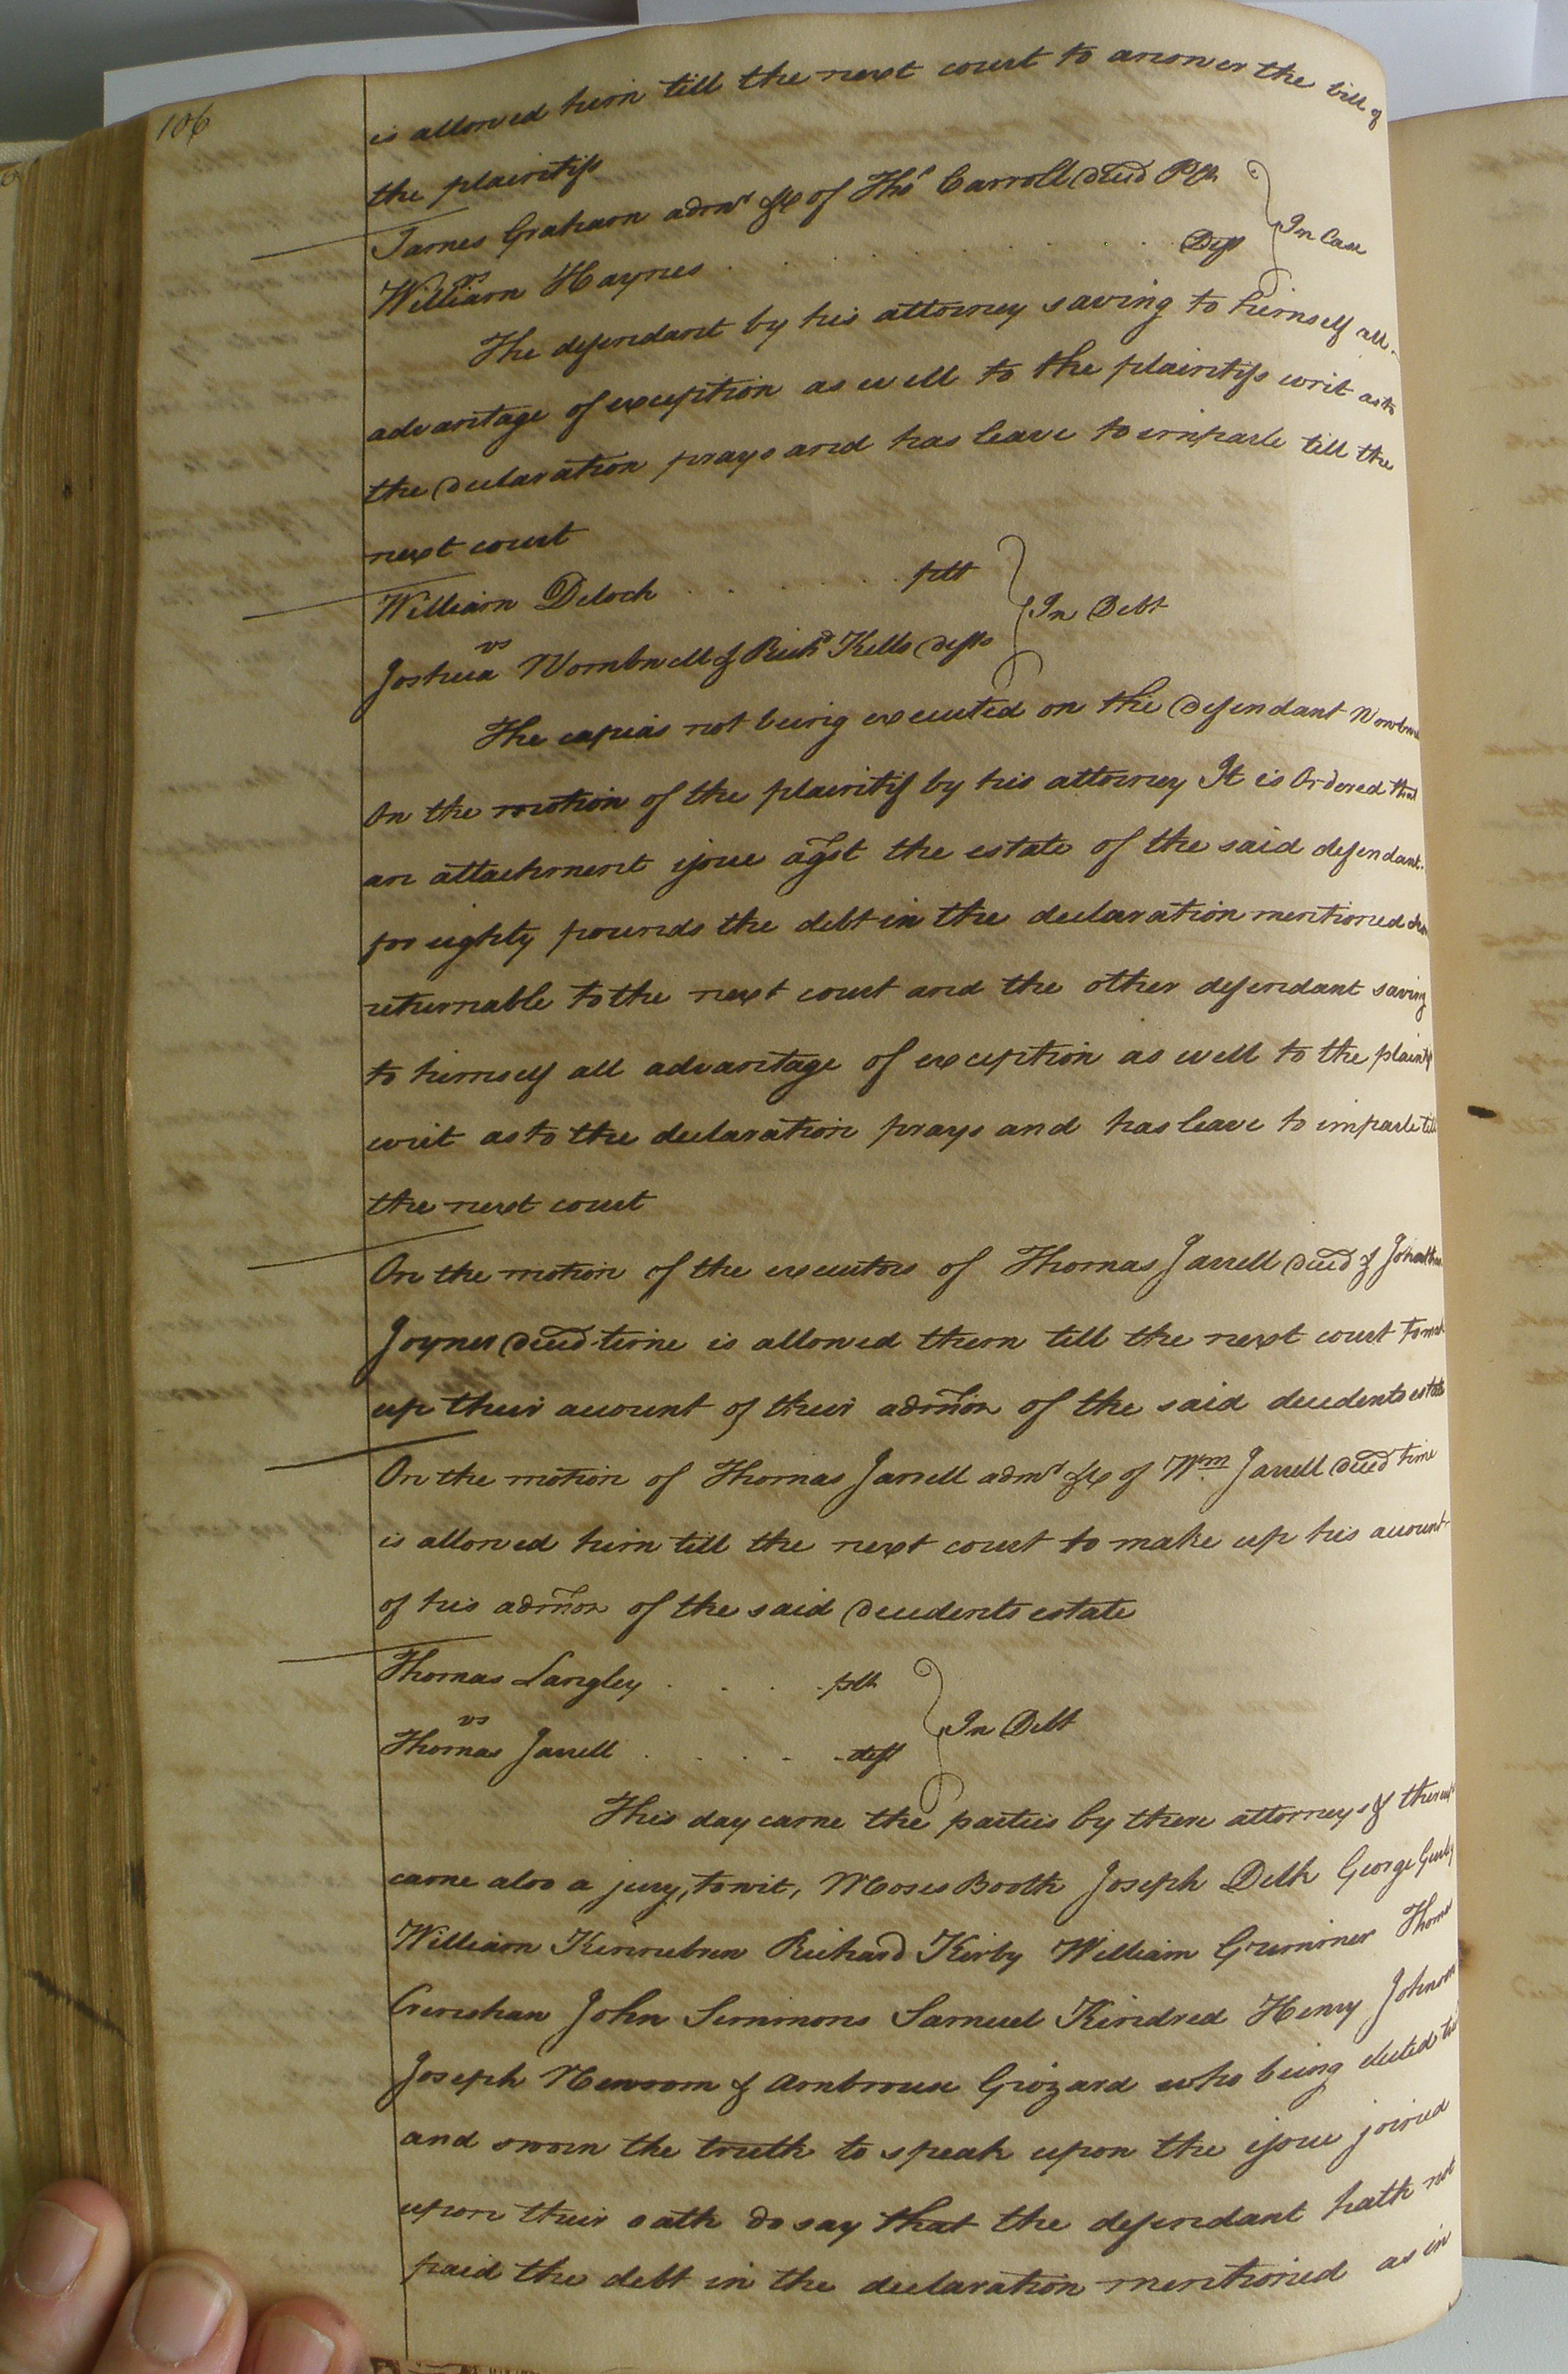 106
is allowed him till the next court to answer the bill of
the plaintifs
James Graham admr &c of Thos Carroll decd Plt
vs
William Haynes . . . . . . Deft
In Case
The defendant by his attorney saving to himself all
advantage of exception as well to the plaintifs writ as to
the declaration prays and has leave to imparle till the
next court
William Deloch . . . . plt
vs
Joshua Wombwell & Richd Kello defts
In Debt
The capias not being executed on the defendant
On the motion of the plaintif by his attorney It is Ordered that
an attachment issue agst the estate of the said defendant
for eighty pounds the debt in the declaration mentioned
returnable to the next court and the other defendant saving
to himself all advantage of exception as well to the
writ as to the declaration prays and has leave to imparle till
the next court
On the motion of the executors of Thomas Jarrell decd &
Joyner decd time is allowed them till the next court
up their account of their admon of the said decedents estate
On the motion of Thomas Jarrell admr &c of Wm Jarrell decd time
is allowed him till the next court to make up his account
of his admon of the said decedents estate
Thomas Langley . . . . plt
vs
Thomas Jarrell . . . . . deft
In Debt
This day came the parties by there attorneys &
came also a jury, to wit, Moses Booth Joseph Delk George
William Kinnebrew Richard Kirby William Grimmer Thomas
John Simmons Samuel Kindred Henry Johnson
Joseph Newsom & Ambrouse Grizard who being elected
and sworn the truth to speak upon the issue joined
upon their oath do say that the defendant hath not
paid the debt in the declaration mentioned as in